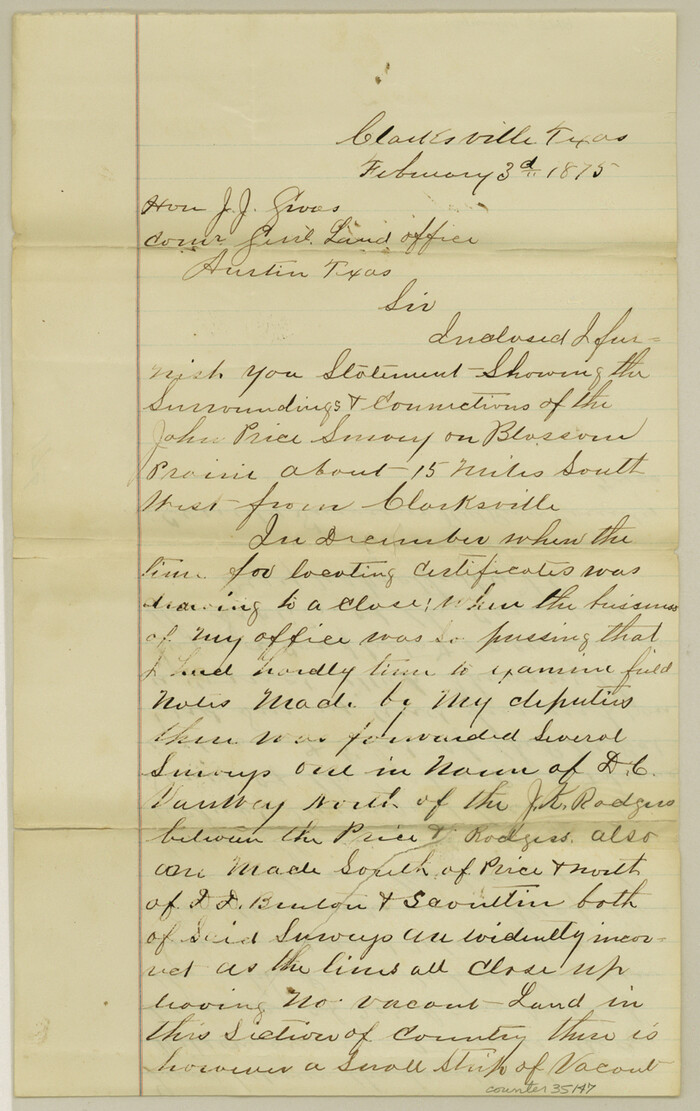 Clarksville Texas
February 3d 1875
Hon J.J. Groos
Comr Genl. Land office
Austin Texas
Sir
Inclosed I fur-
nish you Statement Showing the
Surroundings & Connections of the
John Price Survey on Blossom
Prairie about 15 Miles South
West from Clarksville
In December when the
time for locating Certificates was
drawing to a close; when the bussiness
of my office was so pressing that
I had hardly time to examine field
Notes Made by My deputies
there was forwarded Several
Surveys one in Name of D.C.
Vanwey North of the J.K. Rodgers
between the Price & Rodgers. also
one Made South of Price & North
of D.D. & both
of Said Surveys are evidently incor-
rect as the lines all Close up
leaving No vacant Land in
this Section of Country there is
however a Small Strip of Vacant
counter 35147